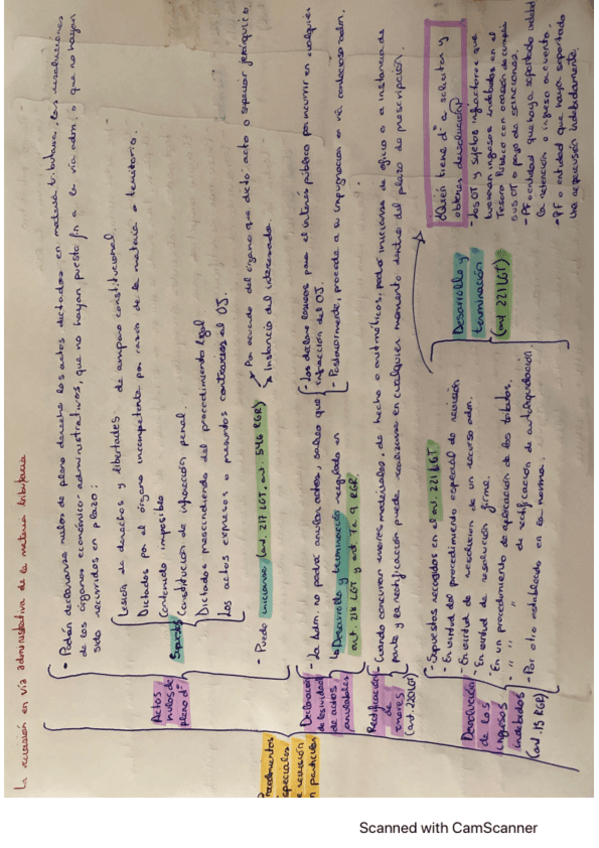 La revisión en vía administrativa de la materia tributaria
Procedimientos
especiales
de revisión
en particular
Actos
nulos de
pleno dº
- Podrán declararse nulos de pleno derecho los actos dictados en materia tributaria, las resoluciones
de los órganos económico-administrativos, que no hayan puesto fin a la vía adm. o que no hayan
sido recurridos en plazo:
Supuestos
Lesión de derechos y libertades de amparo constitucional.
Dictados por el órgano incompetente por razón de la materia o territorio.
Contenido imposible
Constitución de infracción penal.
Dictados prescindiendo del procedimiento legal
Los actos expresos o presuntos contrarios al OJ.
- Puede iniciarse (art. 217 LGT, art. 5 y 6 RGR)
Por acuerdo del órgano que dictó acto o superior jerárquico.
Instancia del interesado.
Declaración
de lesividad
de actos
anulables
- La Adm. no podrá anular actos, salvo que
- Los declare lesivos para el interés público por incurrir en cualquier
infracción del OJ.
- Posteriormente, proceda a su impugnación en vía contencioso adm.
Desarrollo y terminación regulado en
art. 218 LGT y art 7 a 9 RGR
Rectificación
de
errores
(art. 220 LGT)
Cuando concurran errores materiales, de hecho o aritméticos, podrá iniciarse de oficio o a instancia de
parte y la rectificación puede realizarse en cualquier momento dentro del plazo de prescripción.
Devolución
de los
ingresos
indebidos
(art. 15 RGR)
- Supuestos recogidos en el art. 221 LGT
- En virtud del procedimiento especial de revisión
- En virtud de resolución de un recurso adm.
- En virtud de resolución firme.
- En un procedimiento de aplicación de los tributos.
- " " " de rectificación de autoliquidación.
- Por otro establecido en la norma.
Desarrollo y
terminación
(art 221 LGT)
¿Quién tiene dº a solicitar y
obtener devolución?
- Los OT y sujetos infractores que
hubieran ingresos indebidos en el
Tesoro Público con ocasión de cumplir
sus OT o pago de sanciones.
- PF o entidad que haya soportado indebid
la retención o ingreso a cuenta.
- PF o entidad que haya soportado
una repercusión indebidamente.
Scanned with CamScanner